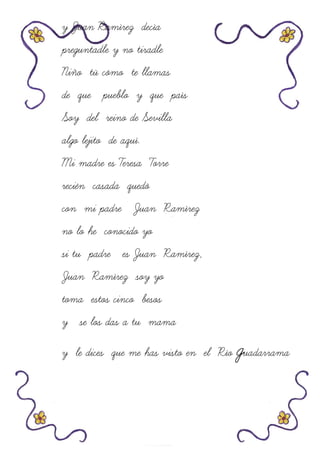 y Juan Ramírez decía
preguntadle y no tiradle
Niño tú como te llamas
de que pueblo y que país
Soy del reino de Sevilla
algo lejito de aquí.
Mi madre es Teresa Torre
recién casada quedó
con mi padre Juan Ramírez
no lo he conocido yo
si tu padre es Juan Ramírez,
Juan Ramírez soy yo
toma estos cinco besos
y se los das a tu mama
y le dices que me has visto en el Río Guadarrama